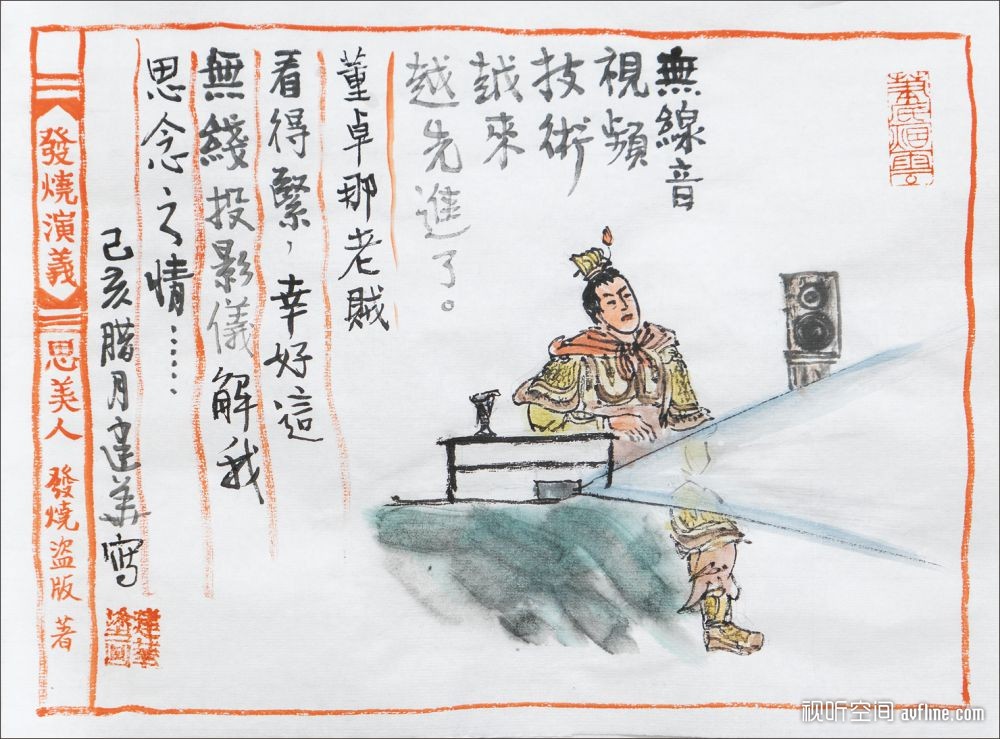 無線音
視頻
技術
越來
越先進了。
董卓那老賊
看得緊，幸好這
無綫投影儀解我
思念之情……
己亥腊月建華寫
發燒演義
思美人
發燒盜版 著
视听空间 avfline.com